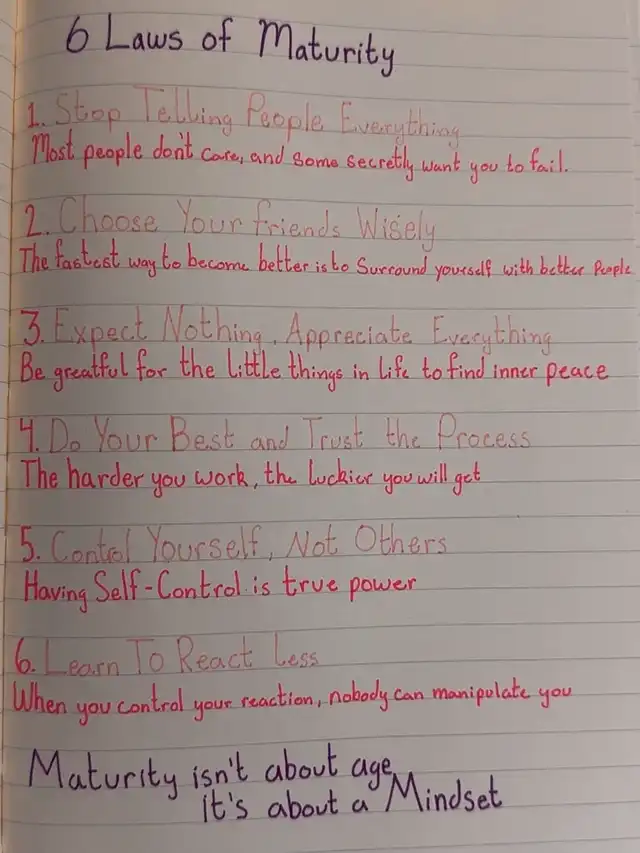 6 Laws of Maturity
1. Stop Telling People Everything
Most people don't care, and some secretly want you to fail.
2. Choose Your friends Wisely
The fastest way to become better is to Surround yourself with better People
3. Expect Nothing, Appreciate Everything
Be greatful for the little things in life to find inner peace
4. Do Your Best and Trust the Process
The harder you work, the luckier you will get
5. Control Yourself, Not Others
Having Self-Control is true power
6. Learn To React Less
When you control your reaction, nobody can manipulate you
Maturity isn't about age
it's about a Mindset